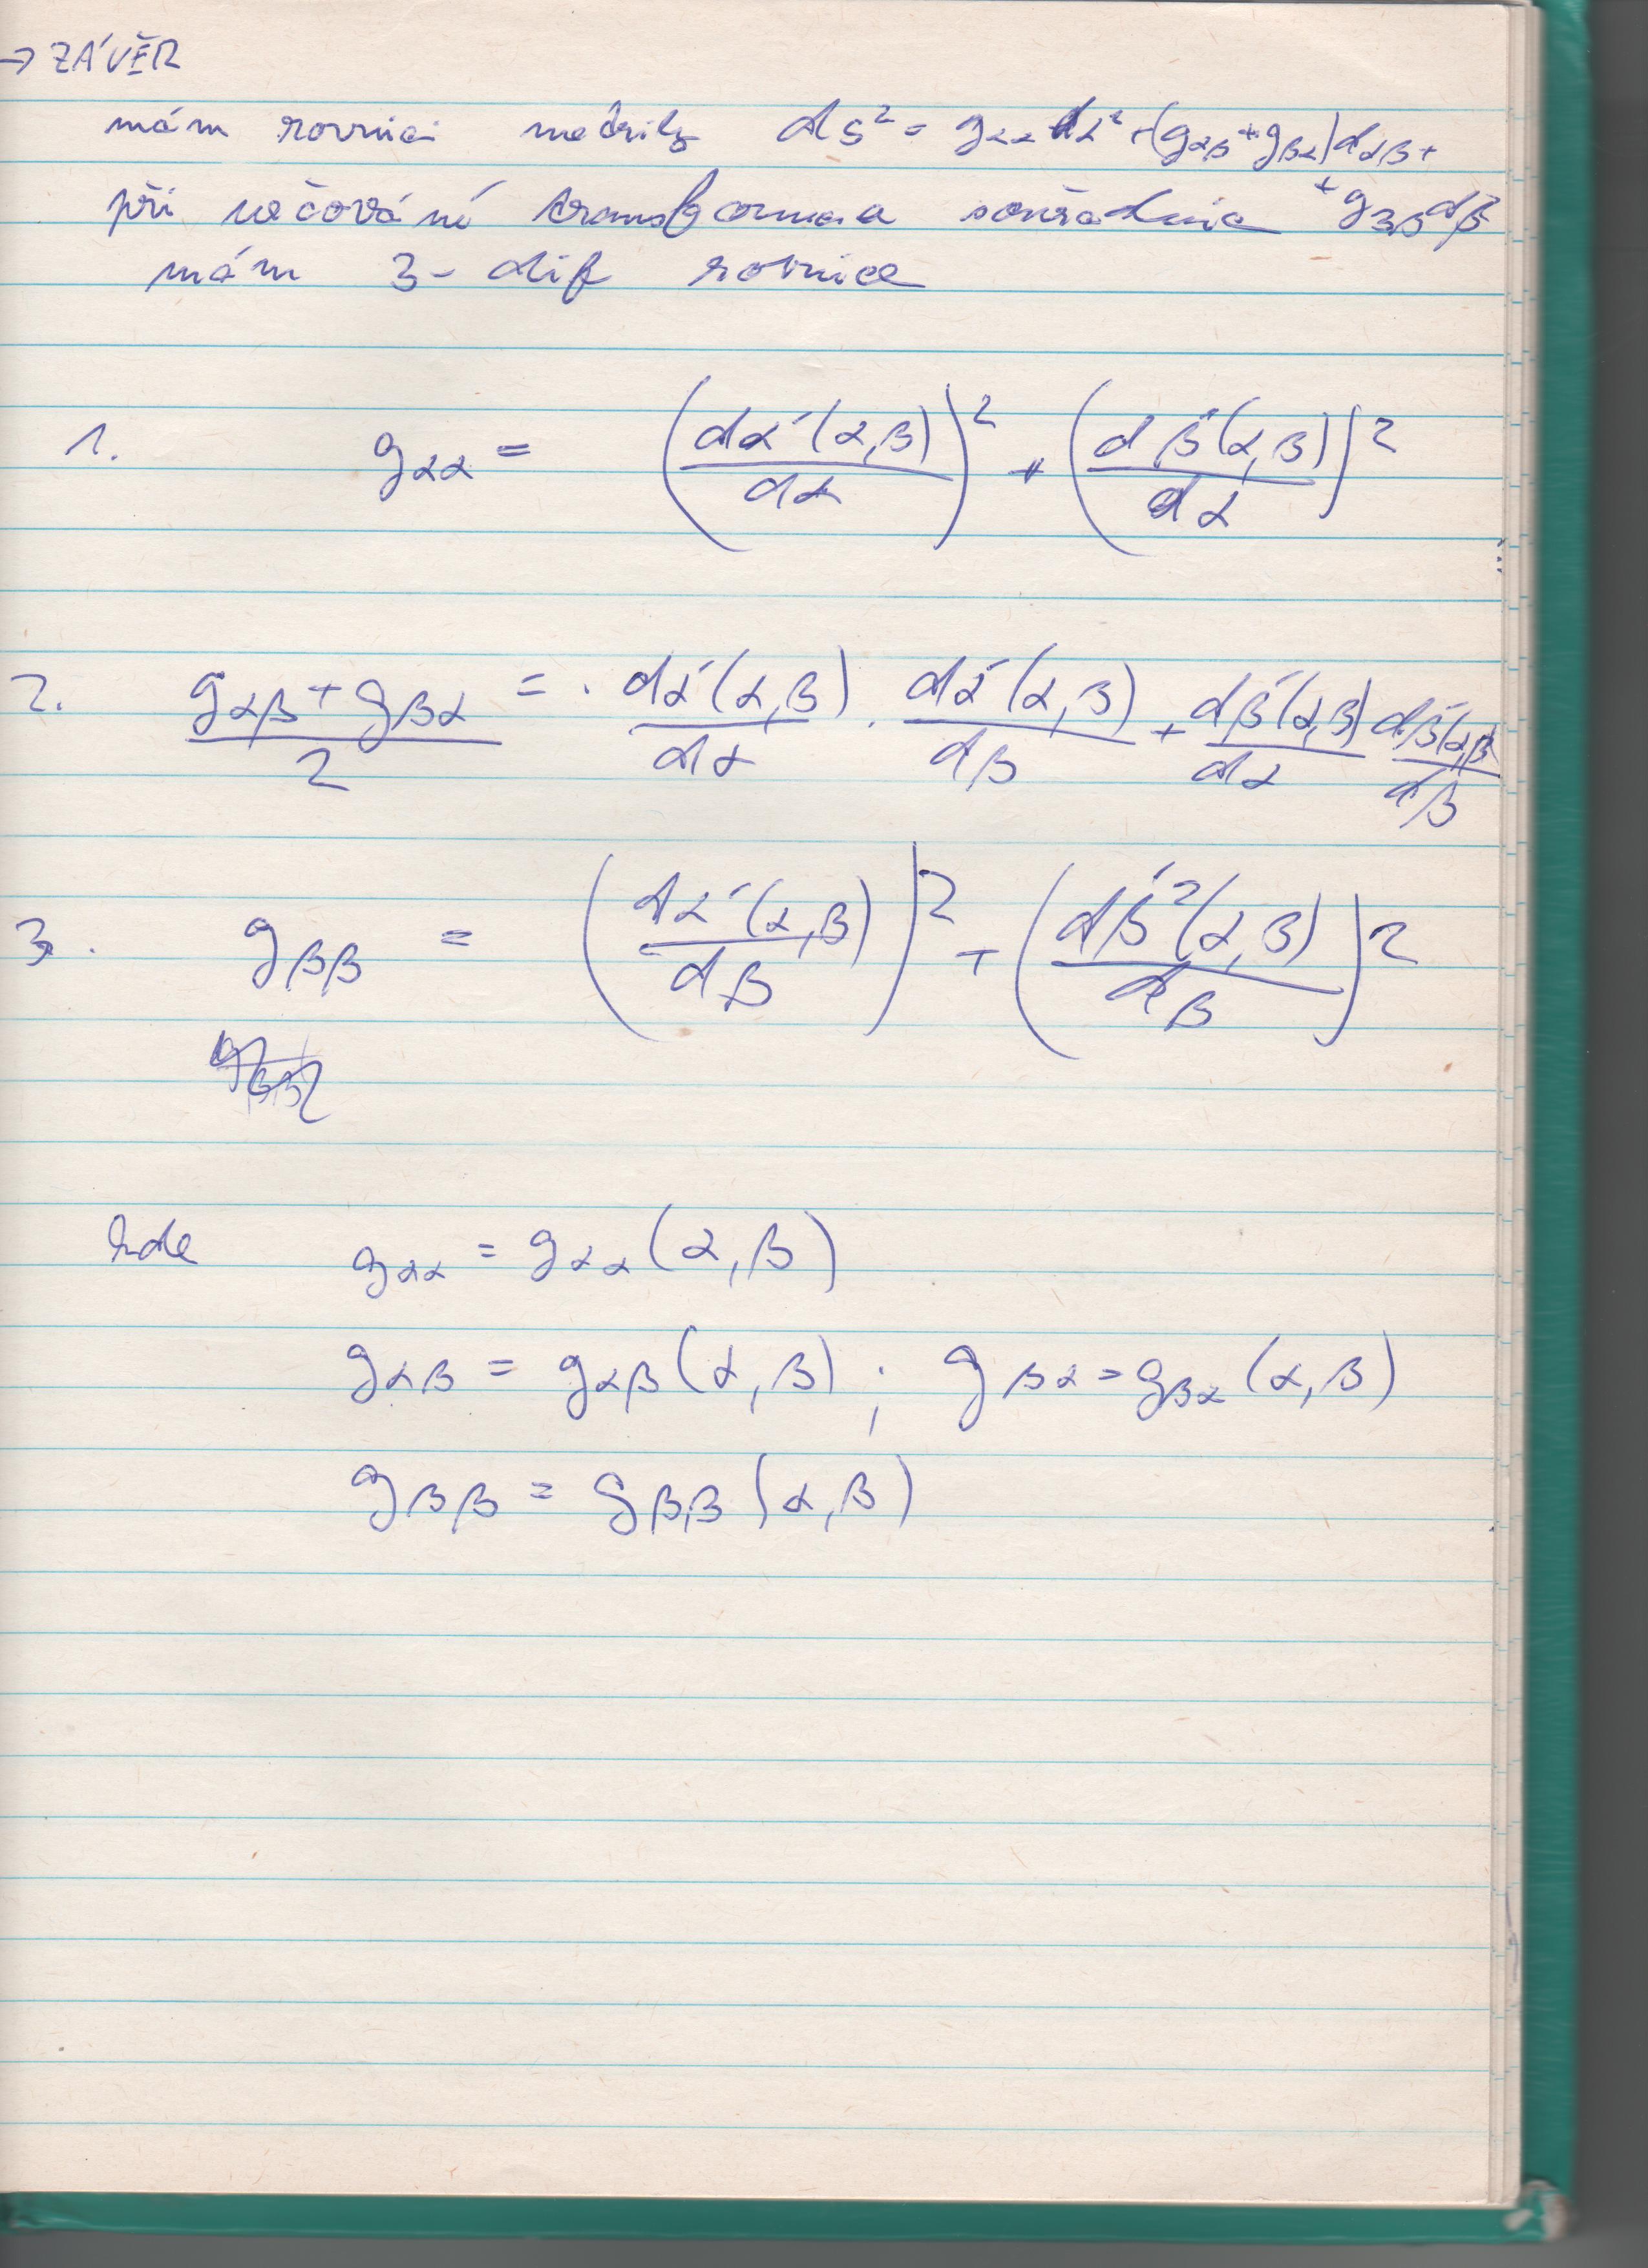 → ZÁVĚR
mám rovnici metriky ds² = gαα dα² + (gαβ + gβα) dαβ +
při určování transformace souřadnic + gββ dβ²
mám 3 - dif rovnice
1. gαα = (dα´(α,β)/dα)² + (dβ´(α,β)/dα)²
2. (gαβ + gβα)/2 = · dα´(α,β)/dα · dα´(α,β)/dβ + dβ´(α,β)/dα dβ´(α,β)/dβ
3. gββ = (dα´(α,β)/dβ)² + (dβ´²(α,β)/dβ)²
kde gαα = gαα (α,β)
gαβ = gαβ (α,β) ; gβα = gβα (α,β)
gββ = gββ (α,β)